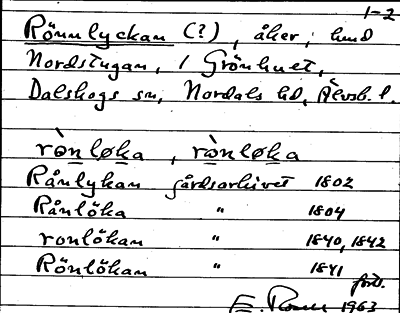 1-2
Rönnlyckan (?), åker, hmd
Nordstugan, i Grönhuet,
Dalskogs sn, Nordals hd, Älvsb. l.
rònlø̀ka, rònløka
Rånlykan gårdsarkivet 1802
Rånlöka " 1804
ronlökan " 1840, 1842
Rönlökan " 1841
ford.
1963